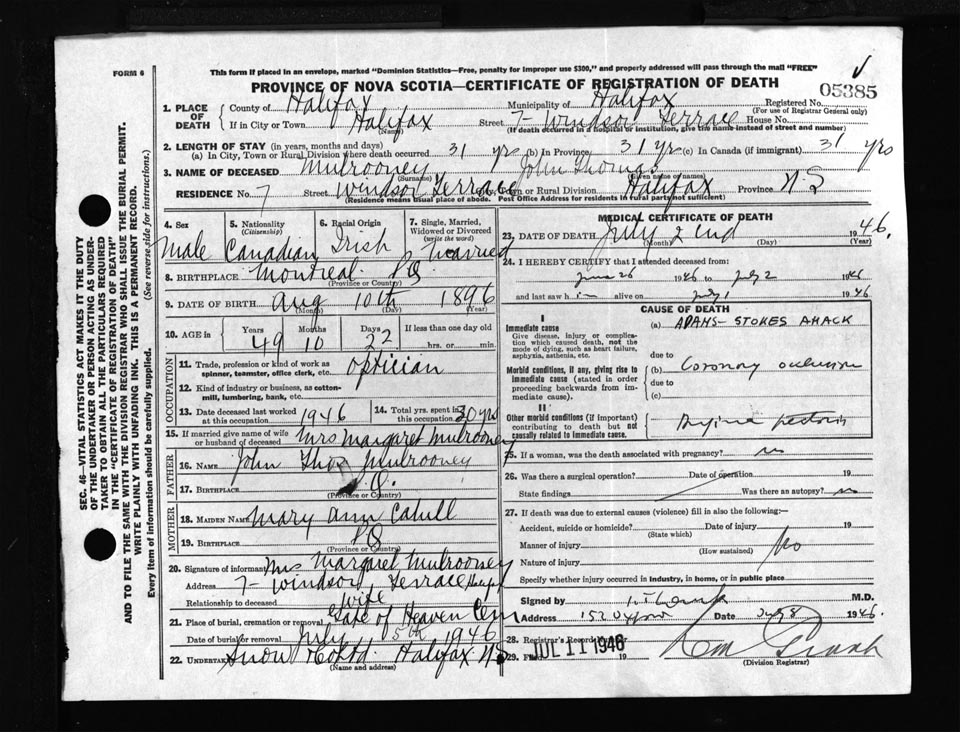 This form if placed in an envelope, marked "Dominion Statistics—Free, penalty for improper use $300," and properly addressed will pass through the mail "FREE"
FORM 6
PROVINCE OF NOVA SCOTIA—CERTIFICATE OF REGISTRATION OF DEATH
05385
1. PLACE OF DEATH County of Halifax Municipality of Halifax Registered No.
(For use of Registrar General only)
If in City or Town Halifax Street 7- Windsor Terrace House No.
(Name) (If death occurred in a hospital or institution, give the name instead of street and number)
2. LENGTH OF STAY (in years, months and days)
(a) In City, Town or Rural Division where death occurred 31 yrs (b) In Province 31 yrs (c) In Canada (if immigrant) 31 yrs
3. NAME OF DECEASED Mulrooney John Thomas
(Surname) (Given name or names)
RESIDENCE No. 7 Street Windsor Terrace City, Town or Rural Division Halifax Province N S
(Residence means usual place of abode. Post Office Address for residents in rural parts not sufficient)
4. Sex 5. Nationality (Citizenship) 6. Racial Origin 7. Single, Married, Widowed or Divorced (write the word)
Male Canadian Irish Married
8. BIRTHPLACE Montreal P Q
(Province or Country)
9. DATE OF BIRTH Aug 10th 1896
(Month) (Day) (Year)
10. AGE in Years Months Days If less than one day old
49 10 22 hrs. or min.
OCCUPATION
11. Trade, profession or kind of work as spinner, teamster, office clerk, etc. Optician
12. Kind of industry or business, as cotton-mill, lumbering, bank, etc.
13. Date deceased last worked at this occupation 1946 14. Total yrs. spent in this occupation 30 yrs
15. If married give name of wife or husband of deceased Mrs Margaret Mulrooney
FATHER
16. Name John Thos Mulrooney
17. Birthplace P.Q.
(Province or Country)
MOTHER
18. Maiden Name Mary Ann Cahill
19. Birthplace P Q
(Province or Country)
20. Signature of informant Mrs Margaret Mulrooney
Address 7- Windsor Terrace
Relationship to deceased wife
21. Place of burial, cremation or removal Gate of Heaven Cem
Date of burial or removal July 5th 1946
22. Undertaker Snow Co Ltd. Halifax NS
(Name and address)
MEDICAL CERTIFICATE OF DEATH
23. DATE OF DEATH July 2nd 1946.
(Month) (Day) (Year)
24. I HEREBY CERTIFY that I attended deceased from:
June 26 1946 to July 2 1946
and last saw him alive on July 1 1946
CAUSE OF DEATH
I
Immediate cause
Give disease, injury or complication which caused death, not the mode of dying, such as heart failure, asphyxia, asthenia, etc.
(a) ADAMS-STOKES ATTACK
due to
Morbid conditions, if any, giving rise to immediate cause (stated in order proceeding backwards from immediate cause).
(b) Coronary occlusion
due to
(c)
II
Other morbid conditions (if important) contributing to death but not causally related to immediate cause.
Angina pectoris
25. If a woman, was the death associated with pregnancy? no
26. Was there a surgical operation? Date of operation 19
State findings Was there an autopsy? no
27. If death was due to external causes (violence) fill in also the following:—
Accident, suicide or homicide? Date of injury 19
(State which)
Manner of injury No
(How sustained)
Nature of injury
Specify whether injury occurred in industry, in home, or in public place
Signed by M.D.
Address 152 Date July 8 1946.
28. Registrar's Record Number
29. Filed JUL 11 1946 19
(Division Registrar)
SEC. 46—VITAL STATISTICS ACT MAKES IT THE DUTY OF THE UNDERTAKER OR PERSON ACTING AS UNDERTAKER TO OBTAIN ALL THE PARTICULARS REQUIRED IN THE "CERTIFICATE OF REGISTRATION OF DEATH" AND TO FILE THE SAME WITH THE DIVISION REGISTRAR WHO SHALL ISSUE THE BURIAL PERMIT.
WRITE PLAINLY WITH UNFADING INK. THIS IS A PERMANENT RECORD.
Every item of information should be carefully supplied. (See reverse side for instructions.)